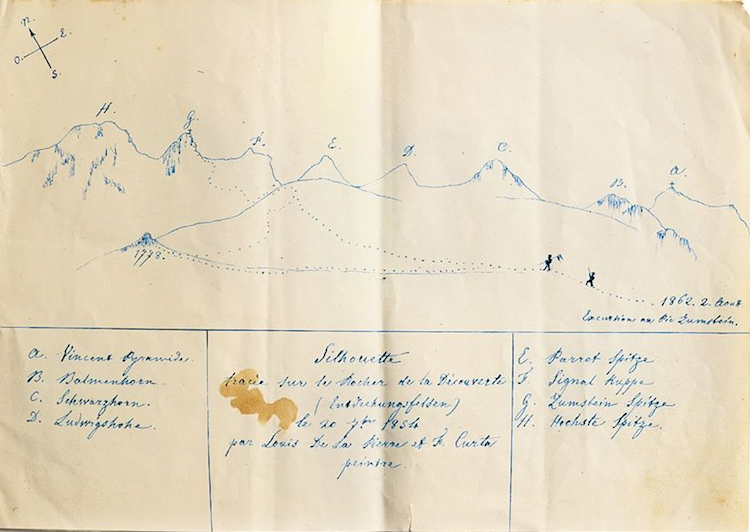 N.
O. E.
S.
H.
G.
F.
E.
D.
C.
B.
A.
1778.
1862. 2. Août
Excursion au Pic Zumstein.
A. Vincent Pyramide.
B. Balmenhorn.
C. Schwarzhorn.
D. Ludwigshohe.
Silhouette
tracée sur le Rocher de la Découverte
(Entdeckungsfelsen)
le 20 7bre
par Louis De La Pierre et F. Curta
peintre.
E. Parrot Spitze
F. Signal Kuppe
G. Zumstein Spitze
H. Hochste Spitze.